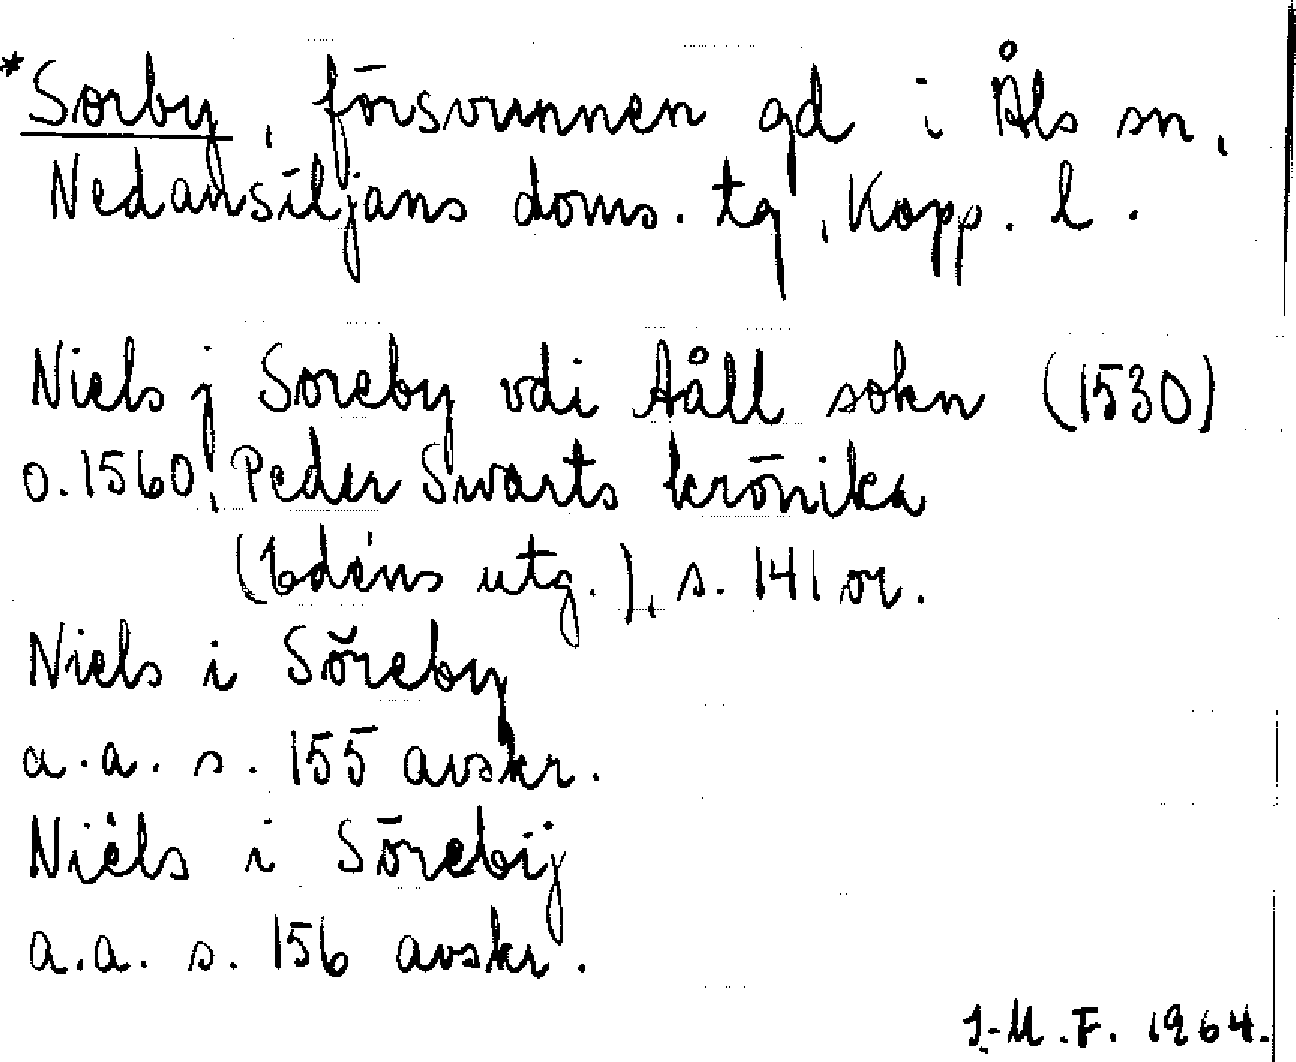 *Sorby, försvunnen gd i Åls sn,
Nedansiljans doms. tg, Kopp. l.
Niels j Soreby vdi Aåll sokn (1530)
o. 1560, Peder Swarts krönika
(Edéns utg.), s. 141 or.
Niels i Sŏreby
a.a. s. 155 avskr.
Niels i Sörebij
a.a. s. 156 avskr.
I-M.F. 1964.